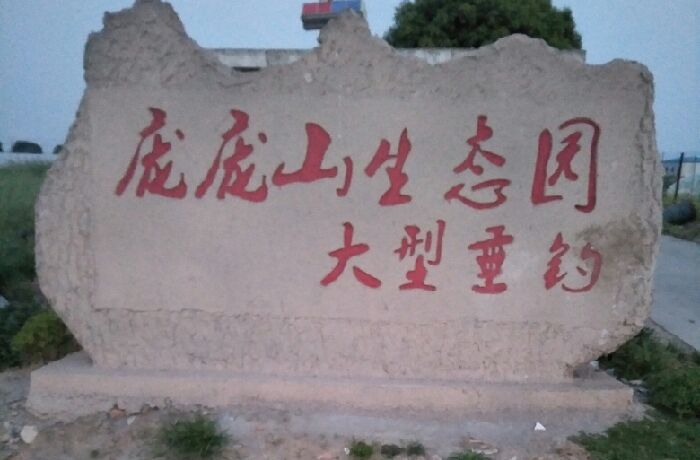 庞庞山生态园
大型垂钓